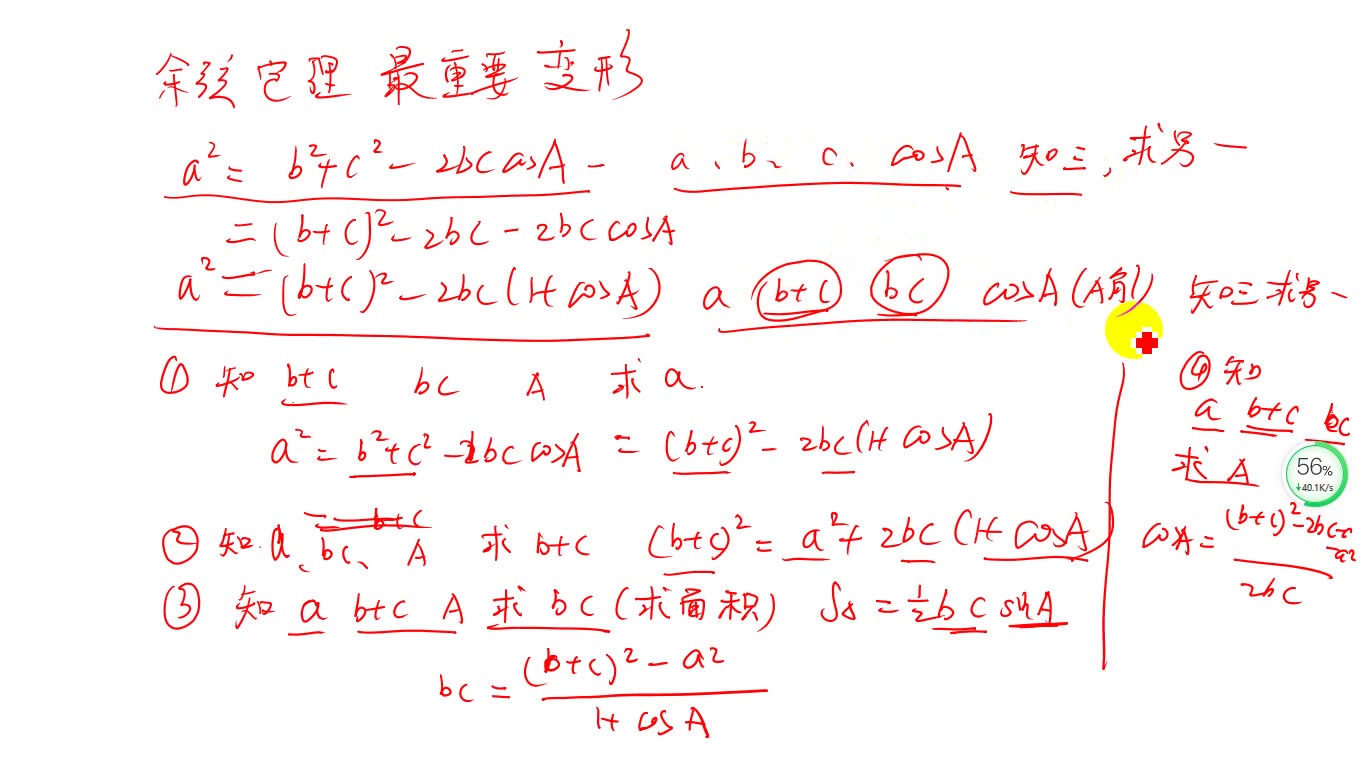 余弦定理 最重要 变形
a²= b²+c²-2bc cosA- a、b、c、cosA 知三,求另一
=(b+c)²-2bc-2bc cosA
a²=(b+c)²-2bc(1+cosA) a (b+c) (bc) cosA(A角) 知三求另一
① 知 b+c bc A 求 a.
a²=b²+c²-2bc cosA = (b+c)²-2bc(1+cosA)
② 知.a、bc、A 求 b+c (b+c)²=a²+2bc(1+cosA)
③ 知 a b+c A 求 bc(求面积) S△=½bc sinA
bc = ((b+c)²-a²)/(1+cosA)
④ 知
a b+c bc
求 A
cosA = ((b+c)²-2bc-a²)/(2bc)
56%
↓40.1K/s